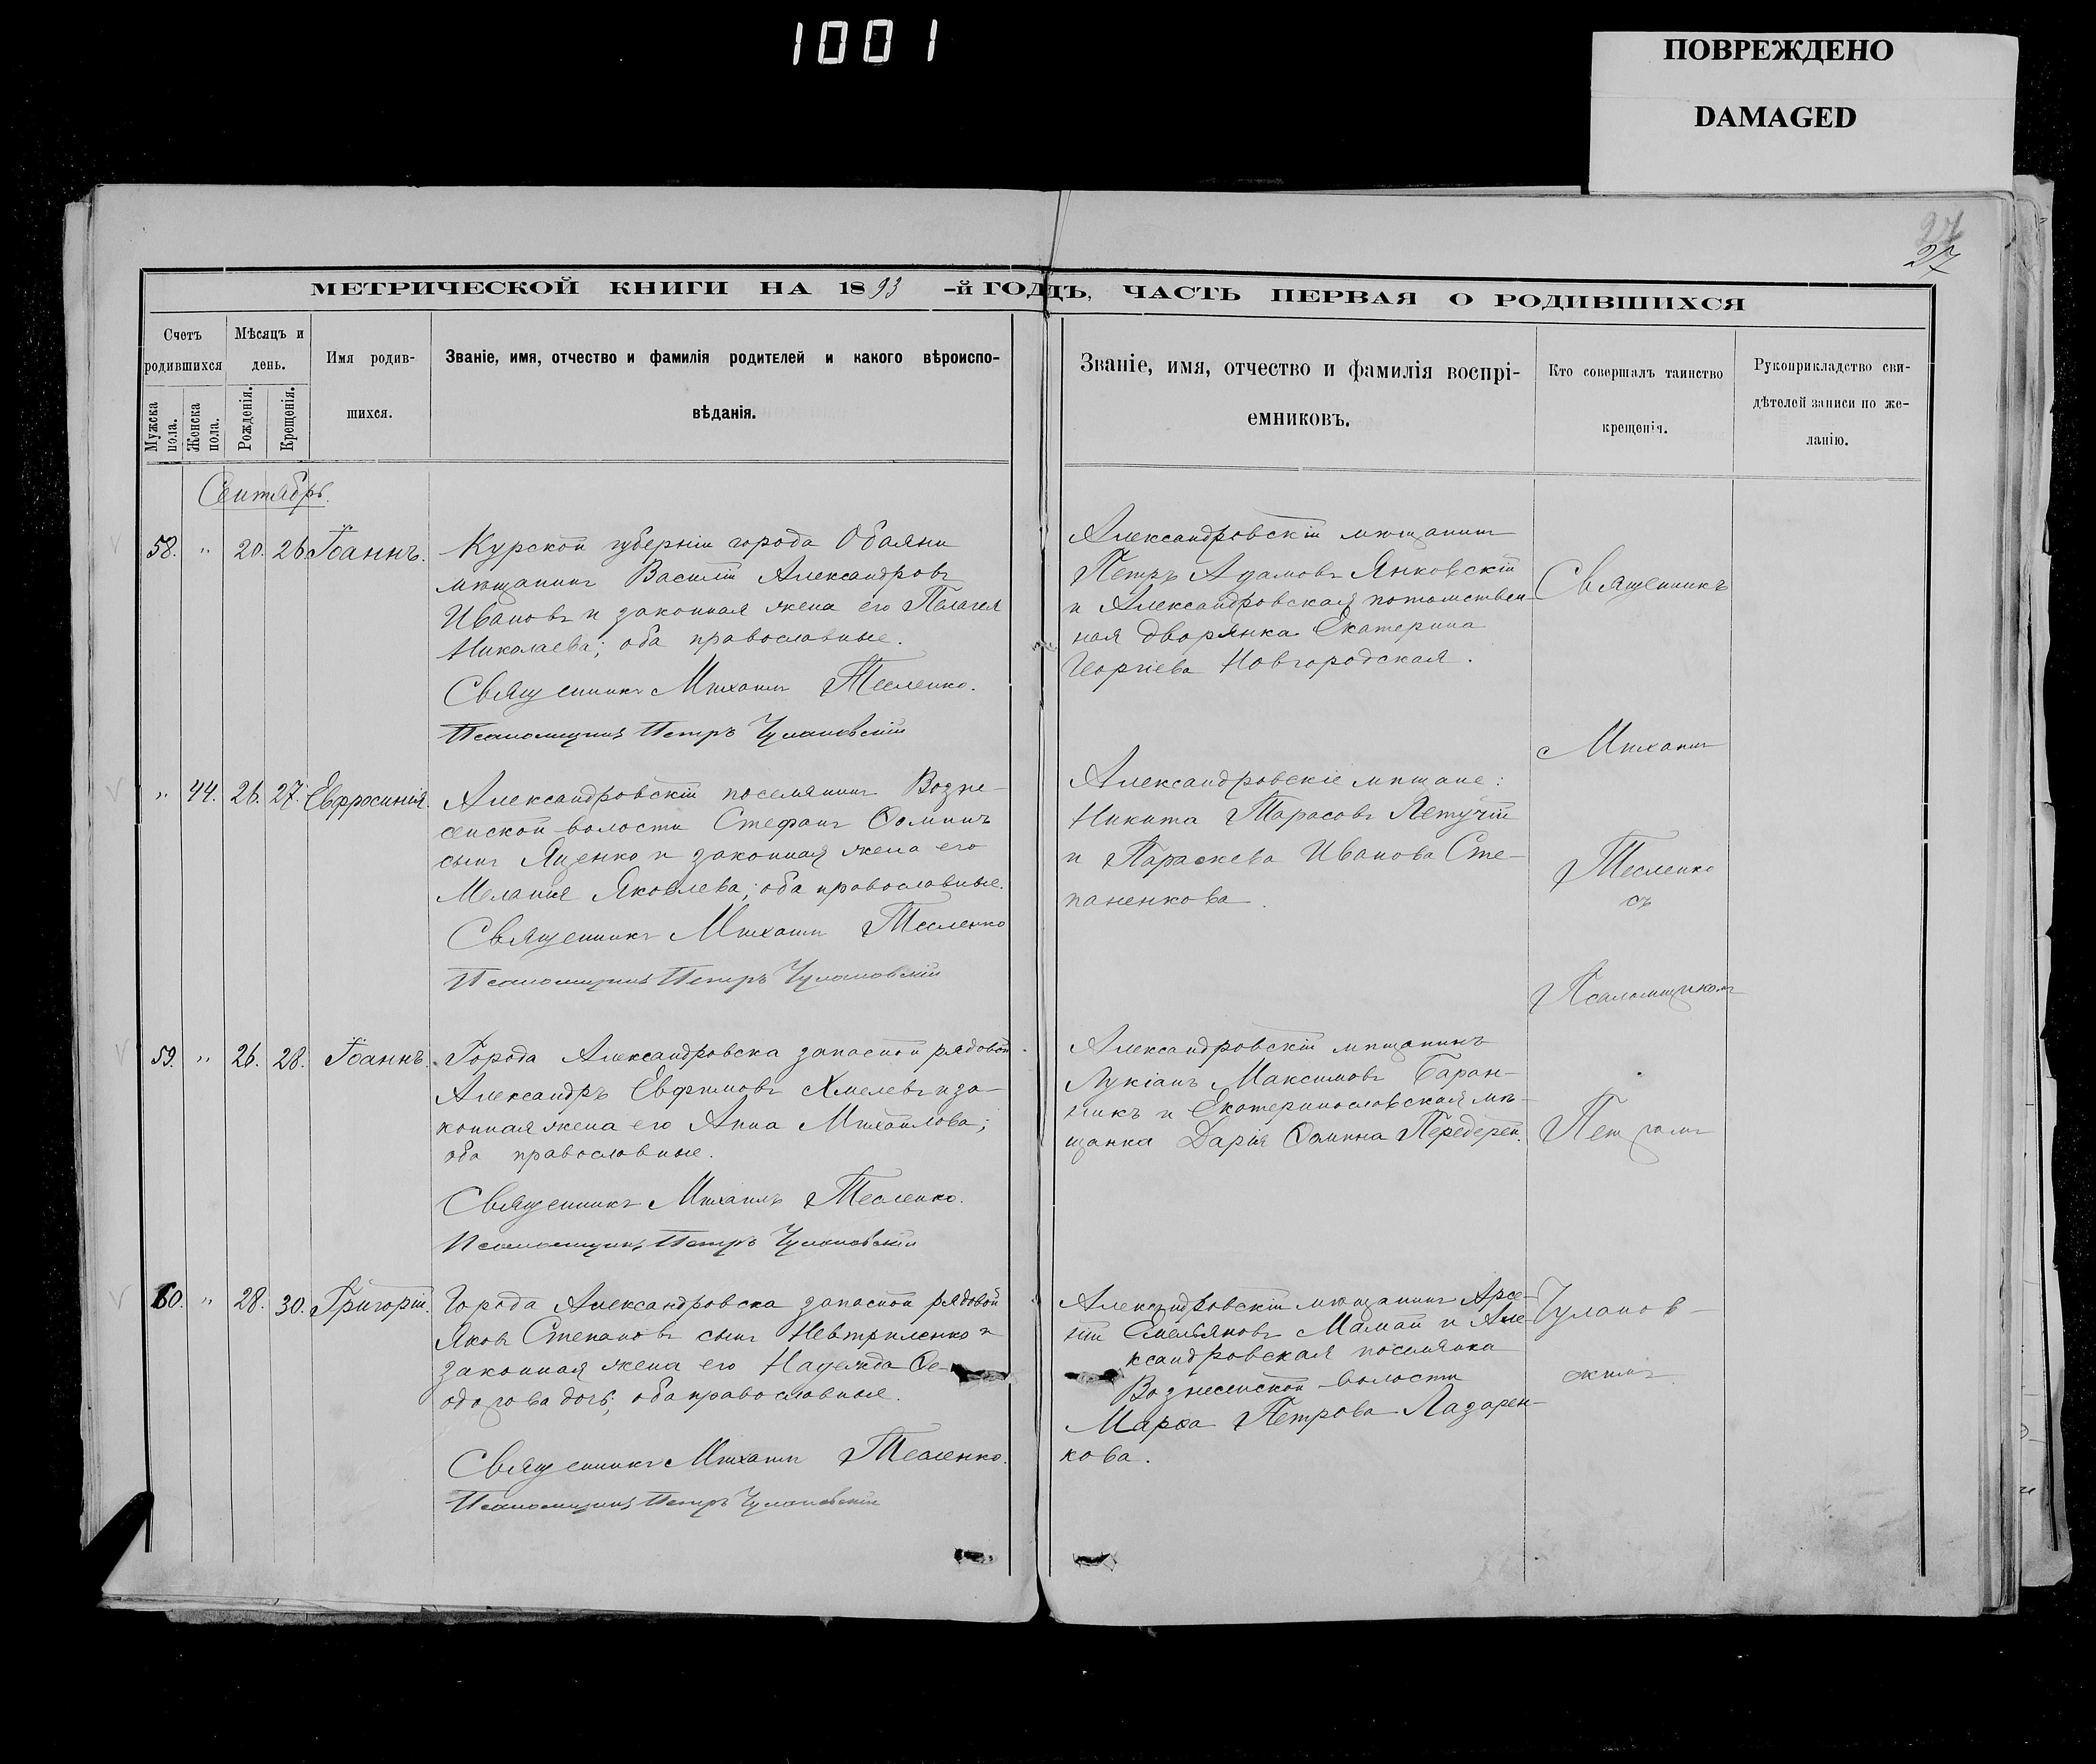 1001
ПОВРЕЖДЕНО
DAMAGED
27
27
МЕТРИЧЕСКОЙ КНИГИ НА 1893 -й ГОДЪ, ЧАСТЬ ПЕРВАЯ О РОДИВШИХСЯ
Счетъ родившихся
Мужска пола.
Женска пола.
Мѣсяцъ и день.
Рожденія.
Крещенія.
Имя родив-
шихся.
Званіе, имя, отчество и фамилія родителей и какого вѣроиспо-
вѣданія.
Званіе, имя, отчество и фамилія воспрі-
емниковъ.
Кто совершалъ таинство
крещенія.
Рукоприкладство сви-
дѣтелей записи по же-
ланію.
Сентябрь.
58. " 20. 26. Іоаннъ.
Курской губерніи города Обаяни
мѣщанинъ Василій Александровъ
Ивановъ и законная жена его Пелагея
Николаева; оба православные.
Священникъ Михаилъ Тесленко.
Псаломщикъ Петръ Чулановскій
Александровскій мѣщанинъ
Петръ Адамовъ Янковскій
и Александровская потомствен-
ная дворянка Екатерина
Георгіева Новгородская.
" 44. 26. 27. Евфросинія.
Александровскій поселянинъ Возне-
сенской волости Стефанъ Ѳоминъ
сынъ Яценко и законная жена его
Меланія Яковлева; оба православные.
Священникъ Михаилъ Тесленко
Псаломщикъ Петръ Чулановскій
Александровскіе мѣщане:
Никита Тарасовъ Летучій
и Параскева Иванова Сте-
паненкова.
59. " 26. 28. Іоаннъ.
Города Александровска запасной рядовой
Александръ Евфимовъ Хмелевъ и за-
конная жена его Анна Михайлова;
оба православные.
Священникъ Михаилъ Тесленко.
Псаломщикъ Петръ Чулановскій
Александровскій мѣщанинъ
Лукіанъ Максимовъ Баран-
никъ и Екатеринославская мѣ-
щанка Дарія Ѳомина Передерей.
60. " 28. 30. Григорій.
Города Александровска запасной рядовой
Яковъ Степановъ сынъ Невтриленко и
законная жена его Надежда Ѳе-
одорова дочь; оба православные.
Священникъ Михаилъ Тесленко.
Псаломщикъ Петръ Чулановскій
Александровскій мѣщанинъ Арсе-
ній Емельяновъ Мамай и Але-
ксандровская поселянка
Вознесенской волости
Марѳа Петрова Лазарен-
кова.
Священникъ
Михаилъ
Тесленко
съ
Псаломщикомъ
Петромъ
Чуланов-
скимъ